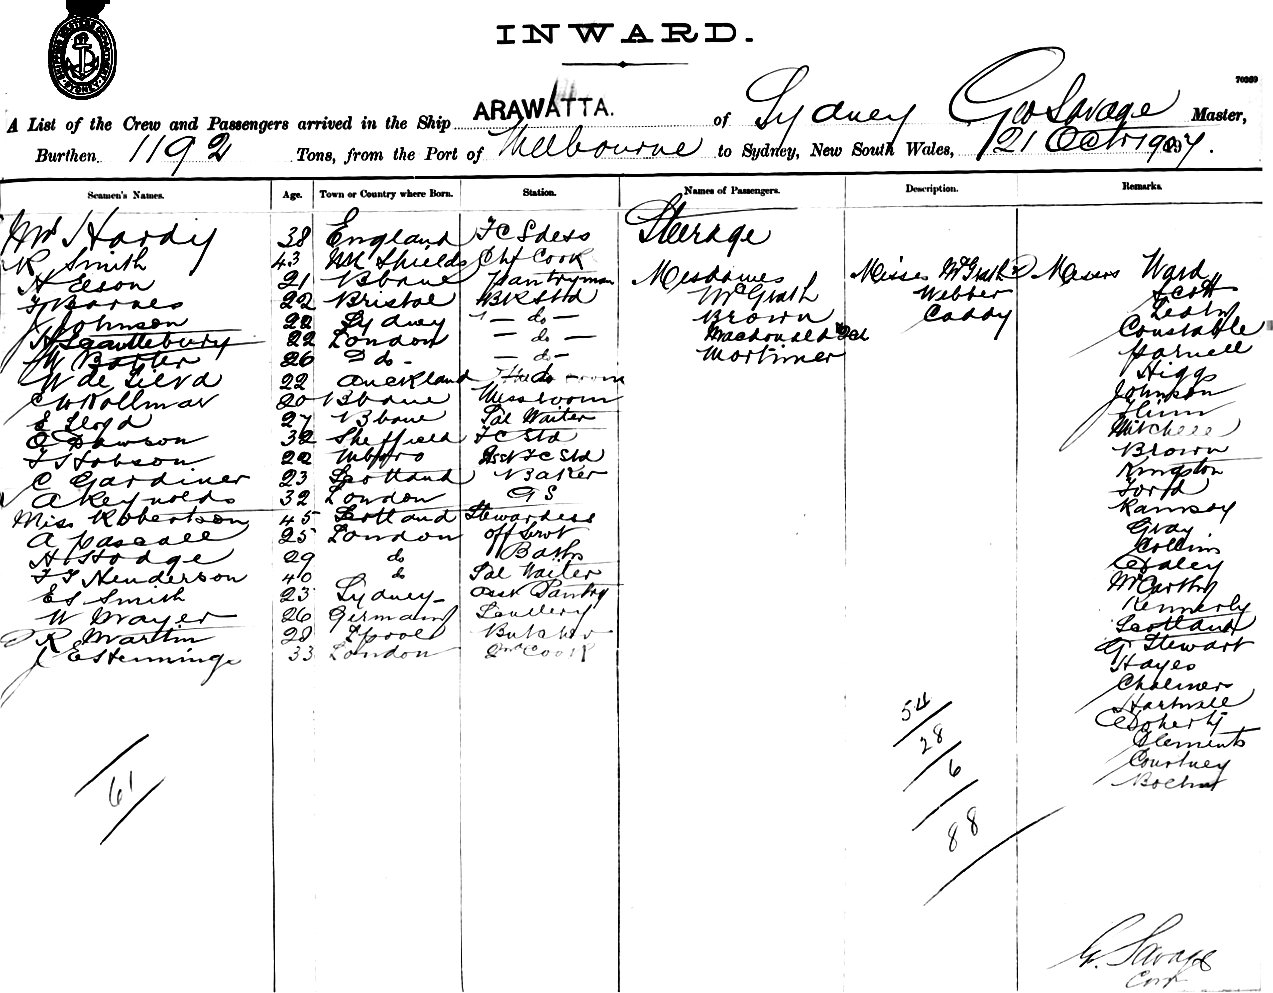 INWARD.
70269
A List of the Crew and Passengers arrived in the Ship ARAWATTA. of Sydney Geo Savage Master,
Burthen 1192 Tons, from the Port of Melbourne to Sydney, New South Wales, 21 Oct 1907.
Seamen's Names. Age. Town or Country where Born. Station. Names of Passengers. Description. Remarks.
Mrs Hardy 38 England F C Sdess Steerage
R Smith 43 Nth Shields Chf Cook
H Elson 21 Bbane Pantryman Mesdames Misses McGrath 2 Messrs Ward
F Barnes 22 Bristol BRStd McGrath Webber Scott
J Johnson 22 Sydney - do - Brown Caddy Leahy
22 London - do - Macdonald & Ch Constable
W Baxter 26 do - - do - Mortimer Harnell
W de Silva 22 Auckland Higgs
C W Hollmar 20 Bbane Messroom Johnson
E Lloyd 27 Bbane Sal Waiter Flinn
Dawson 32 Sheffield F C Std Mitchell
F Hobson 22 Asst F C Std Brown
C Gardiner 23 Scotland Baker Kingston
A Reynolds 32 London G S Forta
Miss Robertson 45 Scotland Stewardess Ramsay
A Pascall 25 London off Servt Gray
H Hodge 29 do Baths Collins
F F Henderson 40 do Sal Waiter Daley
E S Smith 23 Sydney - Asst Pantry McCarthy
W Mayer 26 Germany Scullery Kennerly
R Martin 28 Lpool Butcher Scotland
J E Henninge 33 London 2nd Cook G Stewart
Hayes
Chalmers
Hartnell
54 Doherty
28 Clements
61 6 Courtney
Boehm
88
G. Savage